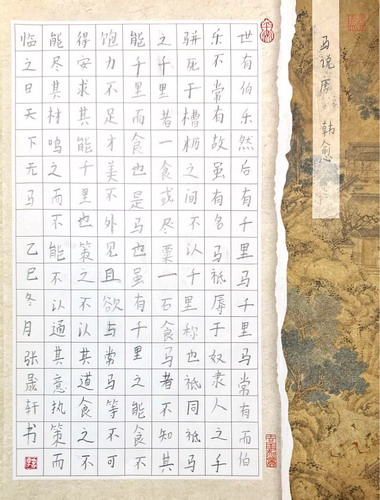 马说 唐 韩愈
世有伯乐然后有千里马千里马常有而伯
乐不常有故虽有名马祗辱于奴隶人之手
骈死于槽枥之间不以千里称也祗同祗马
之千里者一食或尽粟一石食马者不知其
能千里而食也是马也虽有千里之能不食
饱力不足才美不外见且欲与常马等不可
得安求其能千里也策之不以其道食之不
能尽其材鸣之而不能不以通其意执策而
临之曰天下无马 乙巳冬月张晟轩书